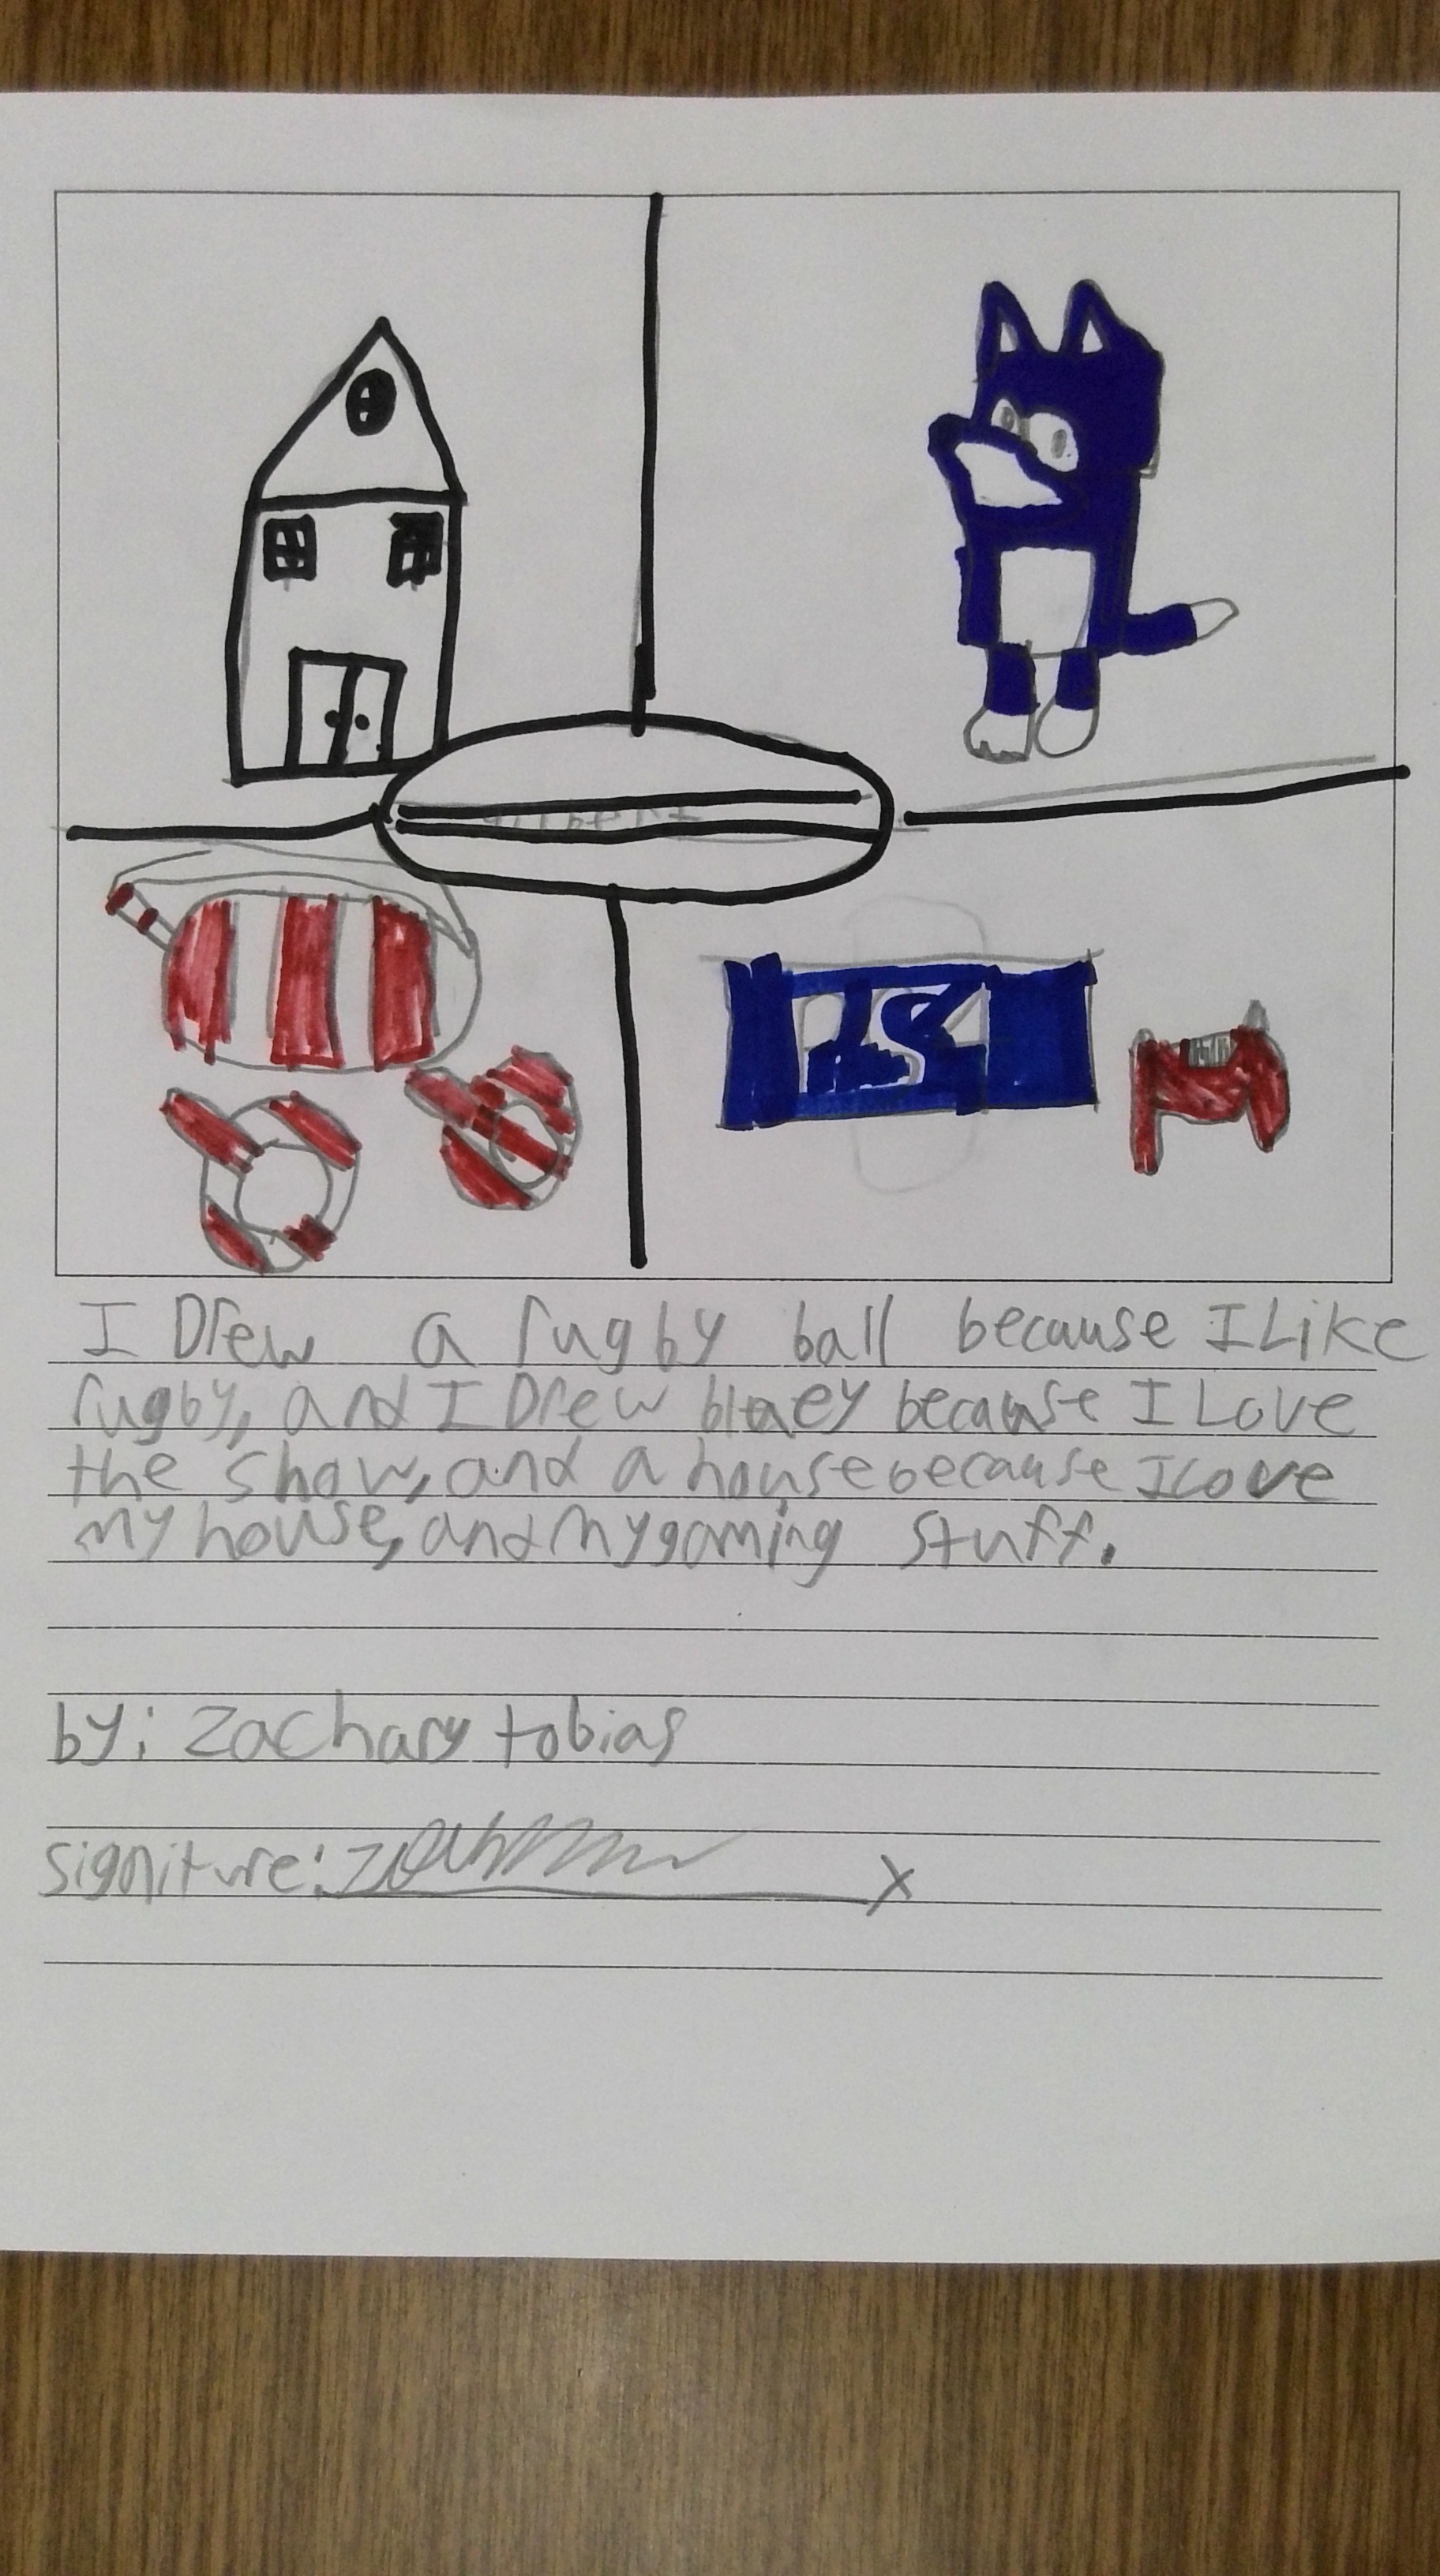 I Drew a rugby ball because I Like
rugby, and I Drew bluey because I Love
the show, and a house because I Love
my house, and my gaming stuff.
by: Zachary tobias
signiture: X